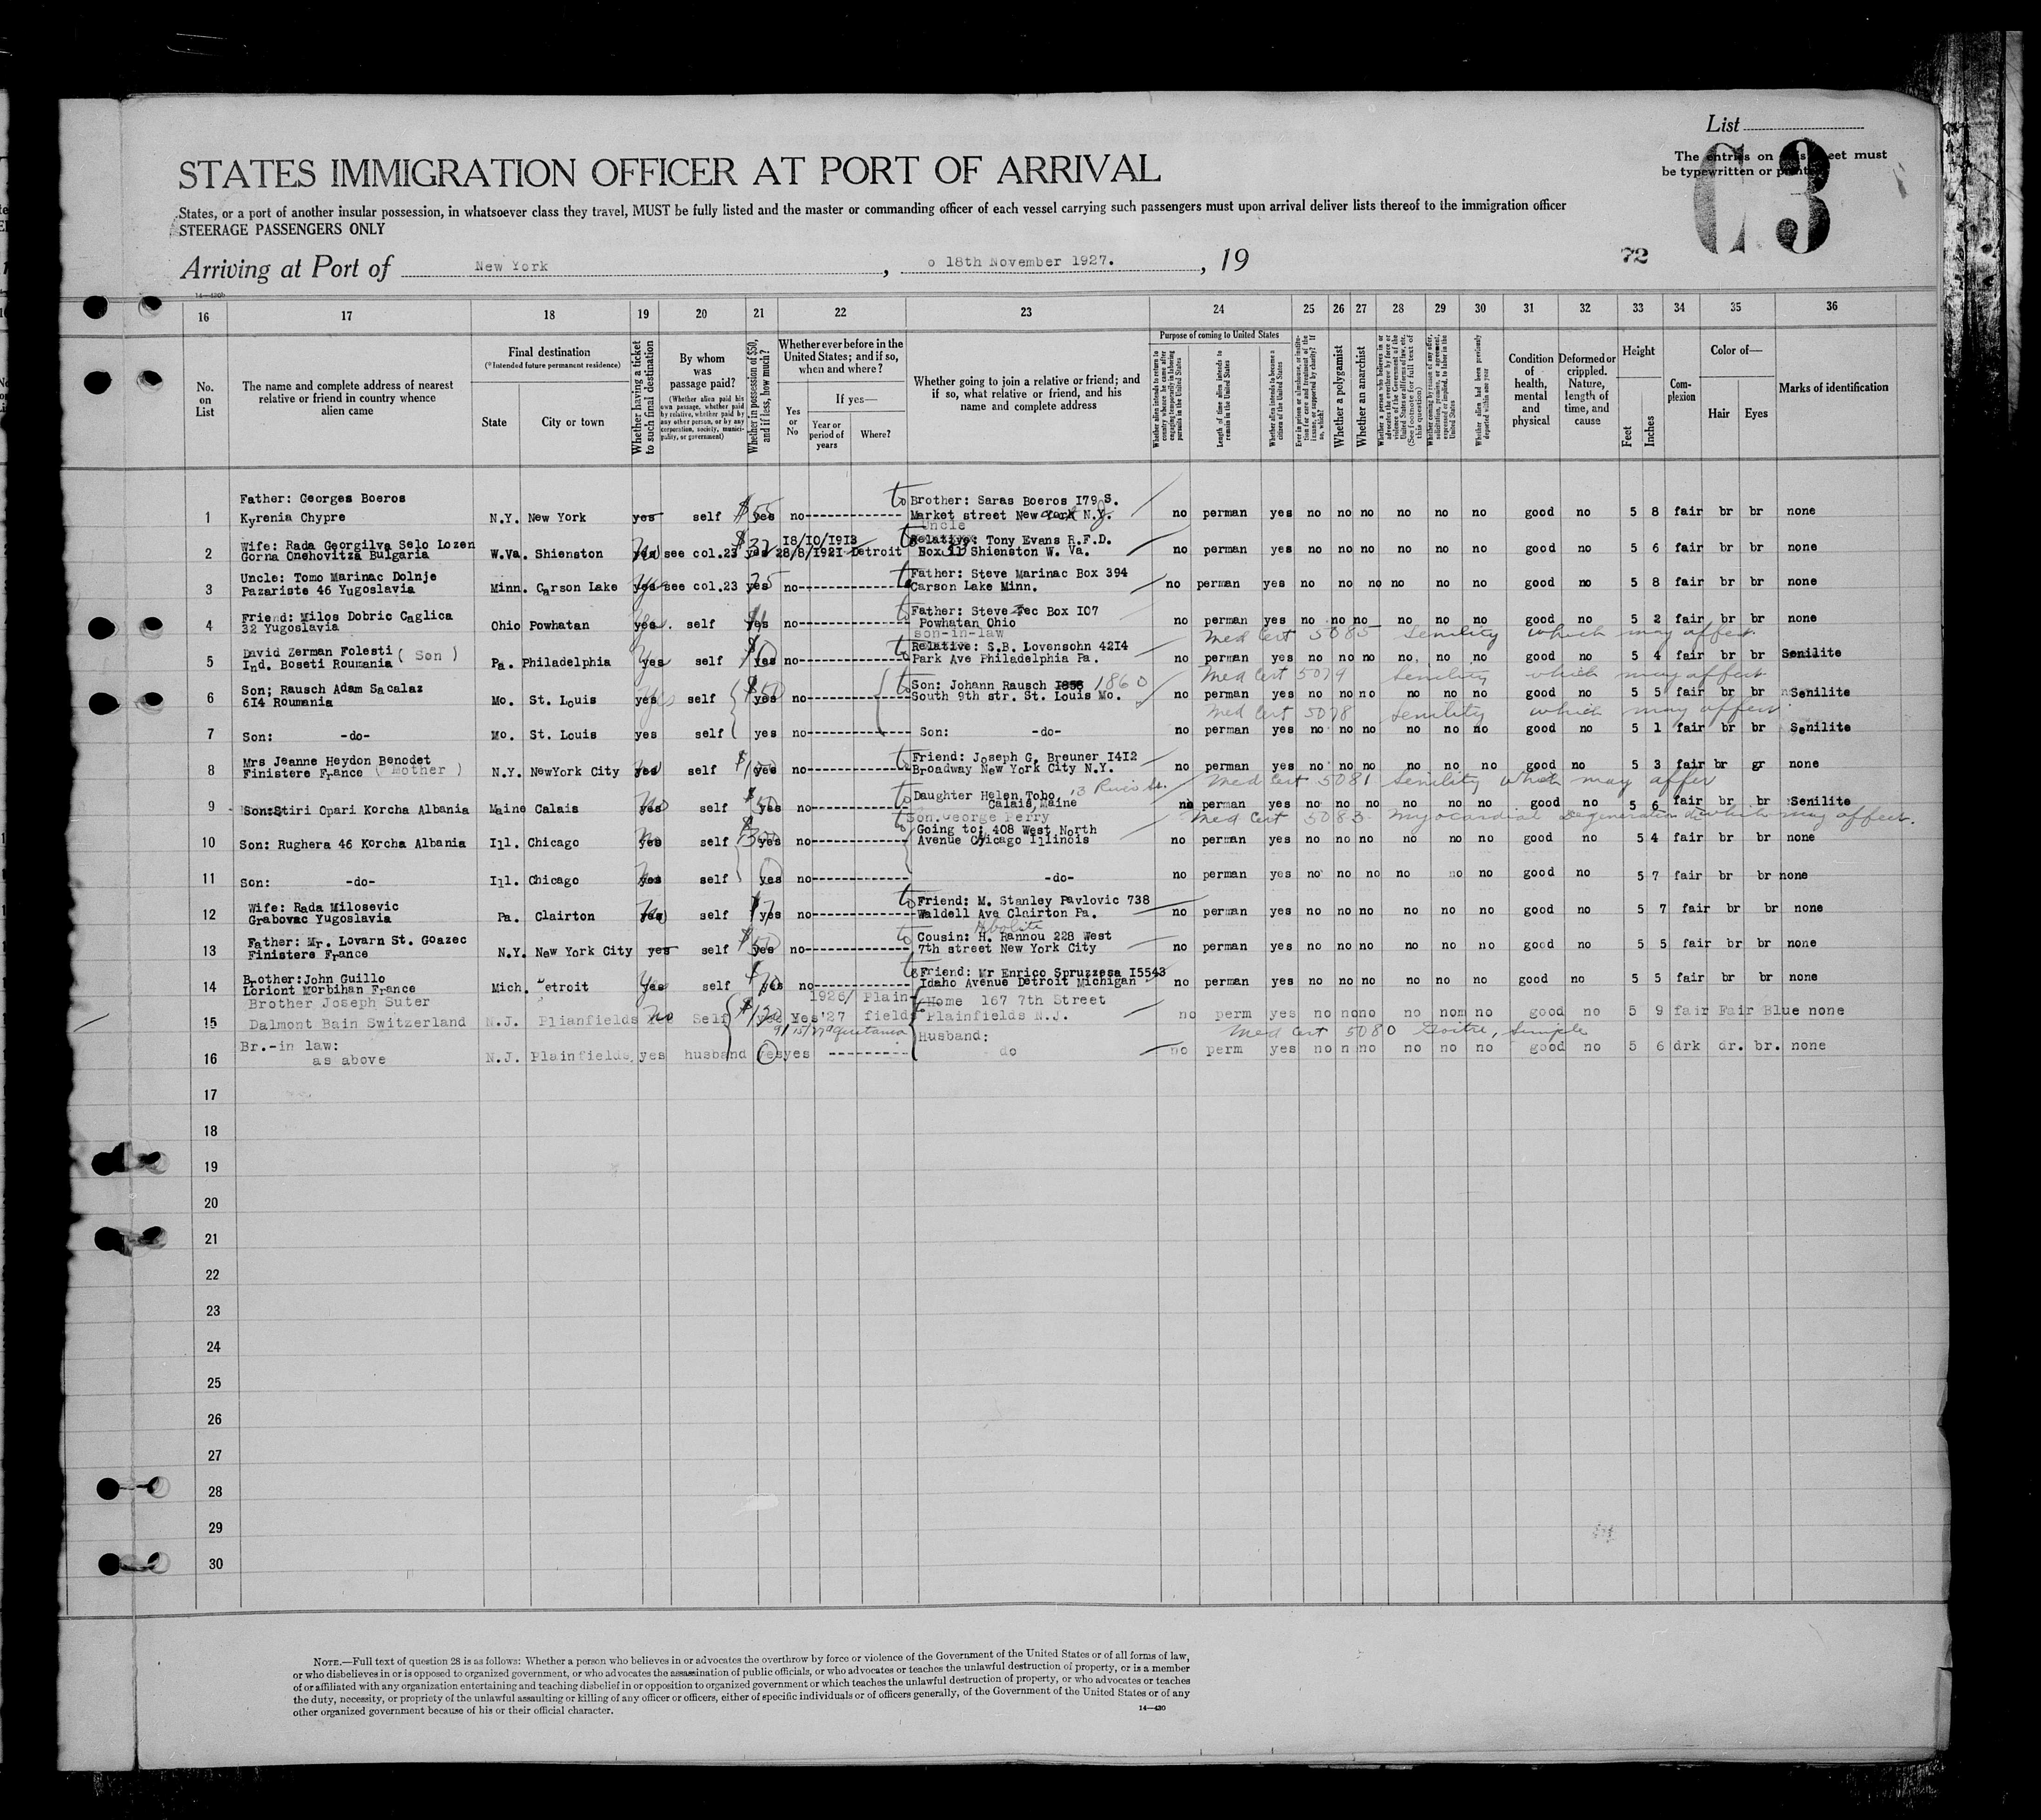 List
The entries on this sheet must
be typewritten or printed
C 3
STATES IMMIGRATION OFFICER AT PORT OF ARRIVAL
States, or a port of another insular possession, in whatsoever class they travel, MUST be fully listed and the master or commanding officer of each vessel carrying such passengers must upon arrival deliver lists thereof to the immigration officer
STEERAGE PASSENGERS ONLY
Arriving at Port of New York , o 18th November 1927. , 19
72
16 17 18 19 20 21 22 23 24 25 26 27 28 29 30 31 32 33 34 35 36
No. on List
The name and complete address of nearest relative or friend in country whence alien came
Final destination
(*Intended future permanent residence)
State
City or town
Whether having a ticket to such final destination
By whom was passage paid?
(Whether alien paid his own passage, whether paid by relative, whether paid by any other person, or by any corporation, society, municipality, or government)
Whether in possession of $50, and if less, how much?
Whether ever before in the United States; and if so, when and where?
Yes or No
If yes—
Year or period of years
Where?
Whether going to join a relative or friend; and if so, what relative or friend, and his name and complete address
Purpose of coming to United States
Whether alien intends to return to country whence he came after engaging temporarily in laboring pursuits in the United States
Length of time alien intends to remain in the United States
Whether alien intends to become a citizen of the United States
Whether a polygamist
Whether an anarchist
Condition of health, mental and physical
Deformed or crippled. Nature, length of time, and cause
Height
Feet
Inches
Complexion
Color of—
Hair
Eyes
Marks of identification
Father: Georges Boeros to Brother: Saras Boeros 179 S.
1 Kyrenia Chypre N.Y. New York yes self yes no Market street New York N.Y. no perman yes no no no no no no good no 5 8 fair br br none
Uncle
Wife: Rada Georgilva Selo Lozen $32 18/10/1913 to Relative: Tony Evans R.F.D.
2 Gorna Onehovitza Bulgaria W.Va. Shienston No see col.23 yes 28/8/1921 Detroit Box Shienston W. Va. no perman yes no no no no no no good no 5 6 fair br br none
Uncle: Tomo Marinac Dolnje 25 to Father: Steve Marinac Box 394
3 Pazariste 46 Yugoslavia Minn. Carson Lake yes see col.23 yes no Carson Lake Minn. no perman yes no no no no no no good no 5 8 fair br br none
Friend: Milos Dobric Caglica to Father: Steve Box 107
4 32 Yugoslavia Ohio Powhatan yes. self yes no Powhatan Ohio no perman yes no no no no no no good no 5 2 fair br br none
son-in-law Med Cert 5085 Senility which may affect
David Zerman Folesti ( Son ) to Relative: S.B. Lovensohn 4214
5 Ind. Boseti Roumania Pa. Philadelphia Yes self yes no Park Ave Philadelphia Pa. no perman yes no no no no. no no good no 5 4 fair br br Senilite
Med Cert 5079 Senility which may affect
Son; Rausch Adam Sacalaz $50 to Son: Johann Rausch 1858 1860
6 614 Roumania Mo. St. Louis yes self yes no South 9th str. St. Louis Mo. no perman yes no no no no no no good no 5 5 fair br br Senilite
Med Cert 5078 Senility which may affect
7 Son: -do- Mo. St. Louis yes self yes no Son: -do- no perman yes no no no no no no good no 5 1 fair br br Senilite
Mrs Jeanne Heydon Benodet to Friend: Joseph G. Breuner 1412
8 Finistere France ( Mother ) N.Y. NewYork City yes self yes no Broadway New York City N.Y. no perman yes no no no no no no good no 5 3 fair br gr none
Med Cert 5081 Senility which may affer
$50 to Daughter Helen Tobo, 13 River St.
9 Son:Stiri Opari Korcha Albania Maine Calais No yes self yes no Calais, Maine no perman yes no no no no no no good no 5 6 fair br br Senilite
Son. George Perry Med Cert 5083 Myocardial Degeneration which may affect.
$300 to Going to: 408 West North
10 Son: Rughera 46 Korcha Albania Ill. Chicago No yes self yes no Avenue Chicago Illinois no perman yes no no no no no no good no 5 4 fair br br none
11 Son: -do- Ill. Chicago yes self yes no -do- no perman yes no no no no no no good no 5 7 fair br br none
Wife: Rada Milosevic to Friend: M. Stanley Pavlovic 738
12 Grabovac Yugoslavia Pa. Clairton yes self yes no Waldell Ave Clairton Pa. no perman yes no no no no no no good no 5 7 fair br br none
Father: Mr. Lovarn St. Goazec $50 to Cousin: H. Rannou 228 West
13 Finistere France N.Y. New York City yes self yes no 7th street New York City no perman yes no no no no no no good no 5 5 fair br br none
Brother:John Guillo to Friend: Mr Enrico Spruzzesa 15543
14 Loriont Morbihan France Mich. Detroit Yes self yes no Idaho Avenue Detroit Michigan no perman yes no no no no no no good no 5 5 fair br br none
Brother Joseph Suter 1926/ Plain- Home 167 7th Street
15 Dalmont Bain Switzerland N.J. Plianfields No Self $120 yes Yes '27 fields Plainfields N.J. no perm yes no no no no nom no good no 5 9 fair Fair Blue none
9/15/27 Aquitania Med Cert 5080 Goitre, Simple
Br.-in law: Husband:
16 as above N.J. Plainfields, yes husband yes yes do no perm yes no n no no no no good no 5 6 drk dr. br. none
17
18
19
20
21
22
23
24
25
26
27
28
29
30
NOTE.—Full text of question 28 is as follows: Whether a person who believes in or advocates the overthrow by force or violence of the Government of the United States or of all forms of law,
or who disbelieves in or is opposed to organized government, or who advocates the assassination of public officials, or who advocates or teaches the unlawful destruction of property, or is a member
of or affiliated with any organization entertaining and teaching disbelief in or opposition to organized government or which teaches the unlawful destruction of property, or who advocates or teaches
the duty, necessity, or propriety of the unlawful assaulting or killing of any officer or officers, either of specific individuals or of officers generally, of the Government of the United States or of any
other organized government because of his or their official character.
14—430